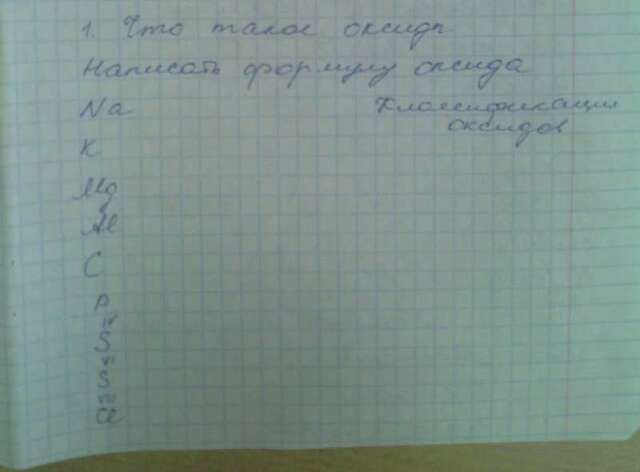 1. Что такое оксиды
Написать формулу оксида
Na Классификация
оксидов
K
Mg
Al
C
P
IV
S
VI
S
VII
Cl